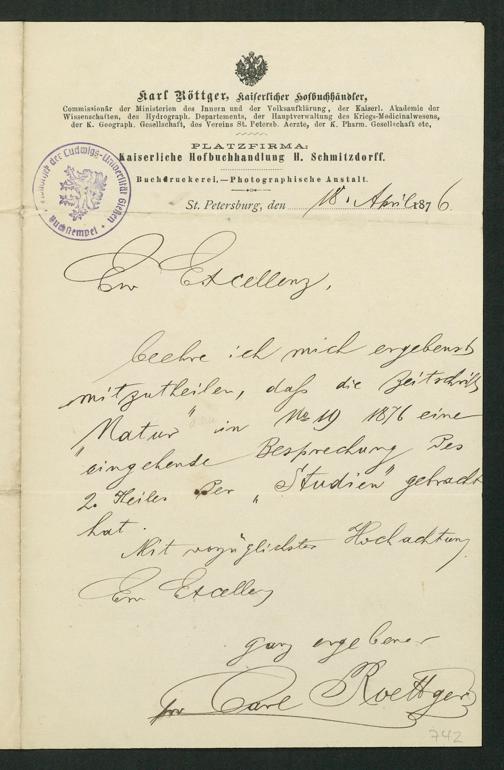 Karl Röttger, Kaiserlicher Hofbuchhändler,
Commissionär der Ministerien des Innern und der Volksaufklärung, der Kaiserl. Akademie der
Wissenschaften, des Hydrograph. Departements, der Hauptverwaltung des Kriegs-Medicinalwesens,
der K. Geograph. Gesellschaft, des Vereins St. Petersb. Aerzte, der K. Pharm. Gesellschaft etc,
PLATZFIRMA:
Kaiserliche Hofbuchhandlung H. Schmitzdorff.
Buchdruckerei.—Photographische Anstalt.
der Ludwigs-Universität Gießen
Buchstempel
St. Petersburg, den 18. April 1876.
Ew Excellenz,
beehre ich mich ergebenst
mitzutheilen, daß die Zeitschrift
"Natur" in No 19 1876 eine
eingehende Besprechung des
2. Theiles der „Studien" gebracht
hat.
Mit vorzüglichster Hochachtung
Ew Excellenz
ganz ergebener
pr Carl Roettger
742